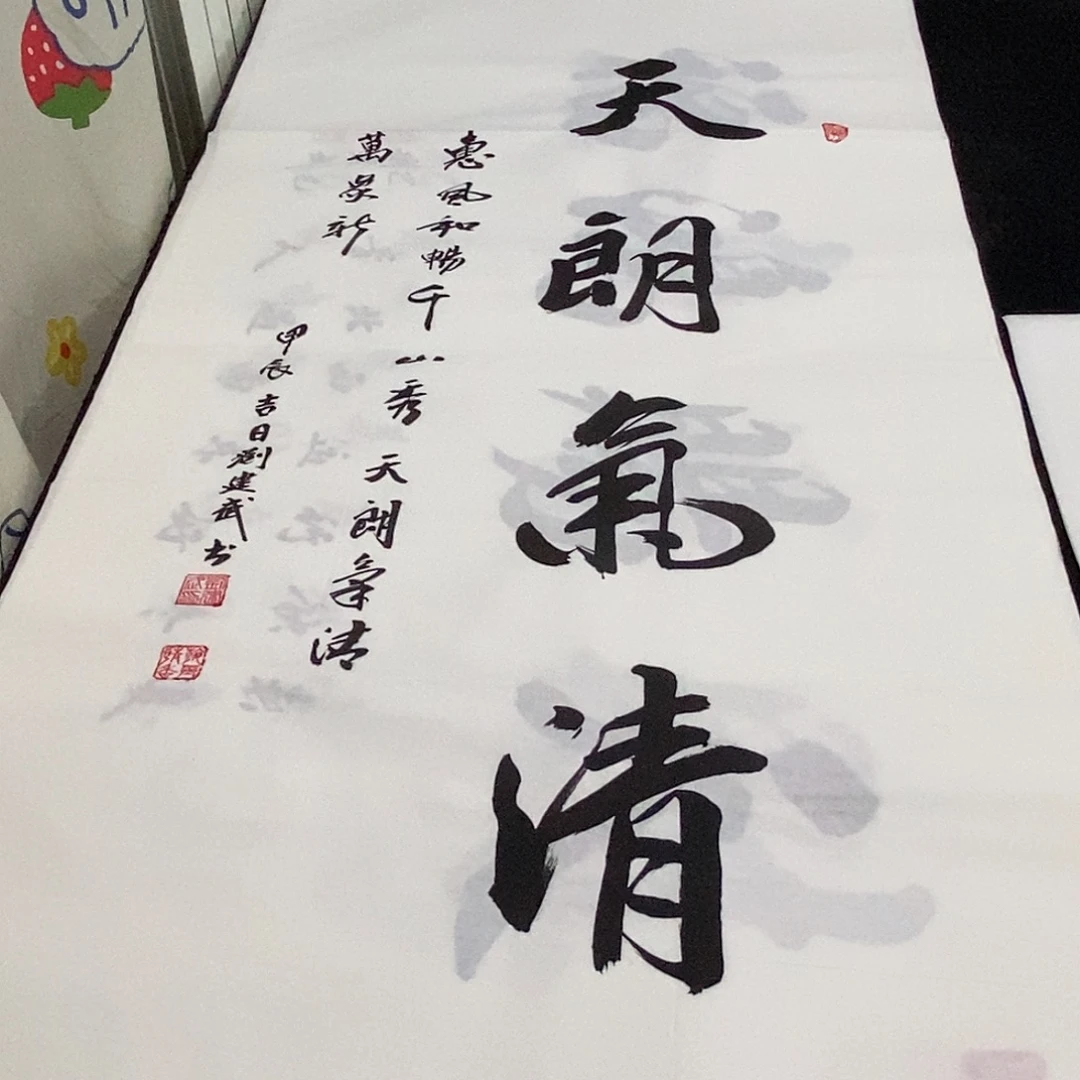 天朗氣清
惠風和暢千山秀天朗氣清
萬景新
甲辰吉日劉建武书